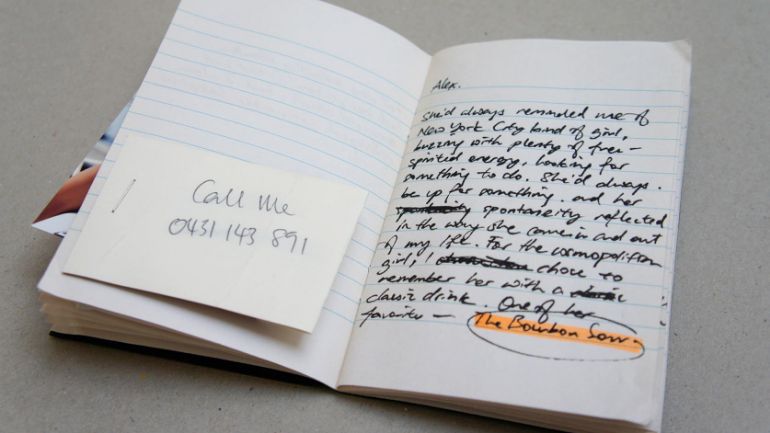 Call Me
0431 143 891
Alex.
She'd always reminded me of
New York City kind of girl,
buzzing with plenty of free-
spirited energy, looking for
something to do. She'd always.
be up for something. and her
spontaneity reflected
in the way she comes in and out
of my life. For the cosmopolitan
girl, I chose to
remember her with a
classic drink. One of her
favorite -
The Bourbon Sour